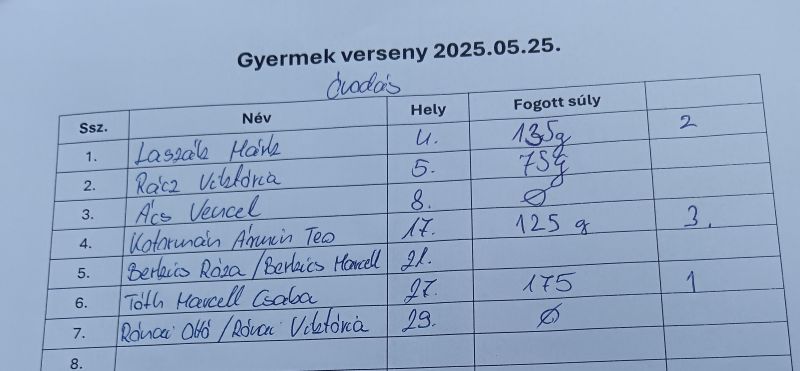 Gyermek verseny 2025.05.25.
Óvodás
Ssz. Név Hely Fogott súly
1. Laszák Márk 4. 135g 2
2. Rácz Viktória 5. 75g
3. Ács Vencel 8. Ø
4. Kotormán Ármin Teo 17. 125 g 3.
5. Berkics Róza / Berkics Marcell 21.
6. Tóth Marcell Csaba 27. 175 1
7. Rónai Ottó / Rónai Viktória 29. Ø
8.